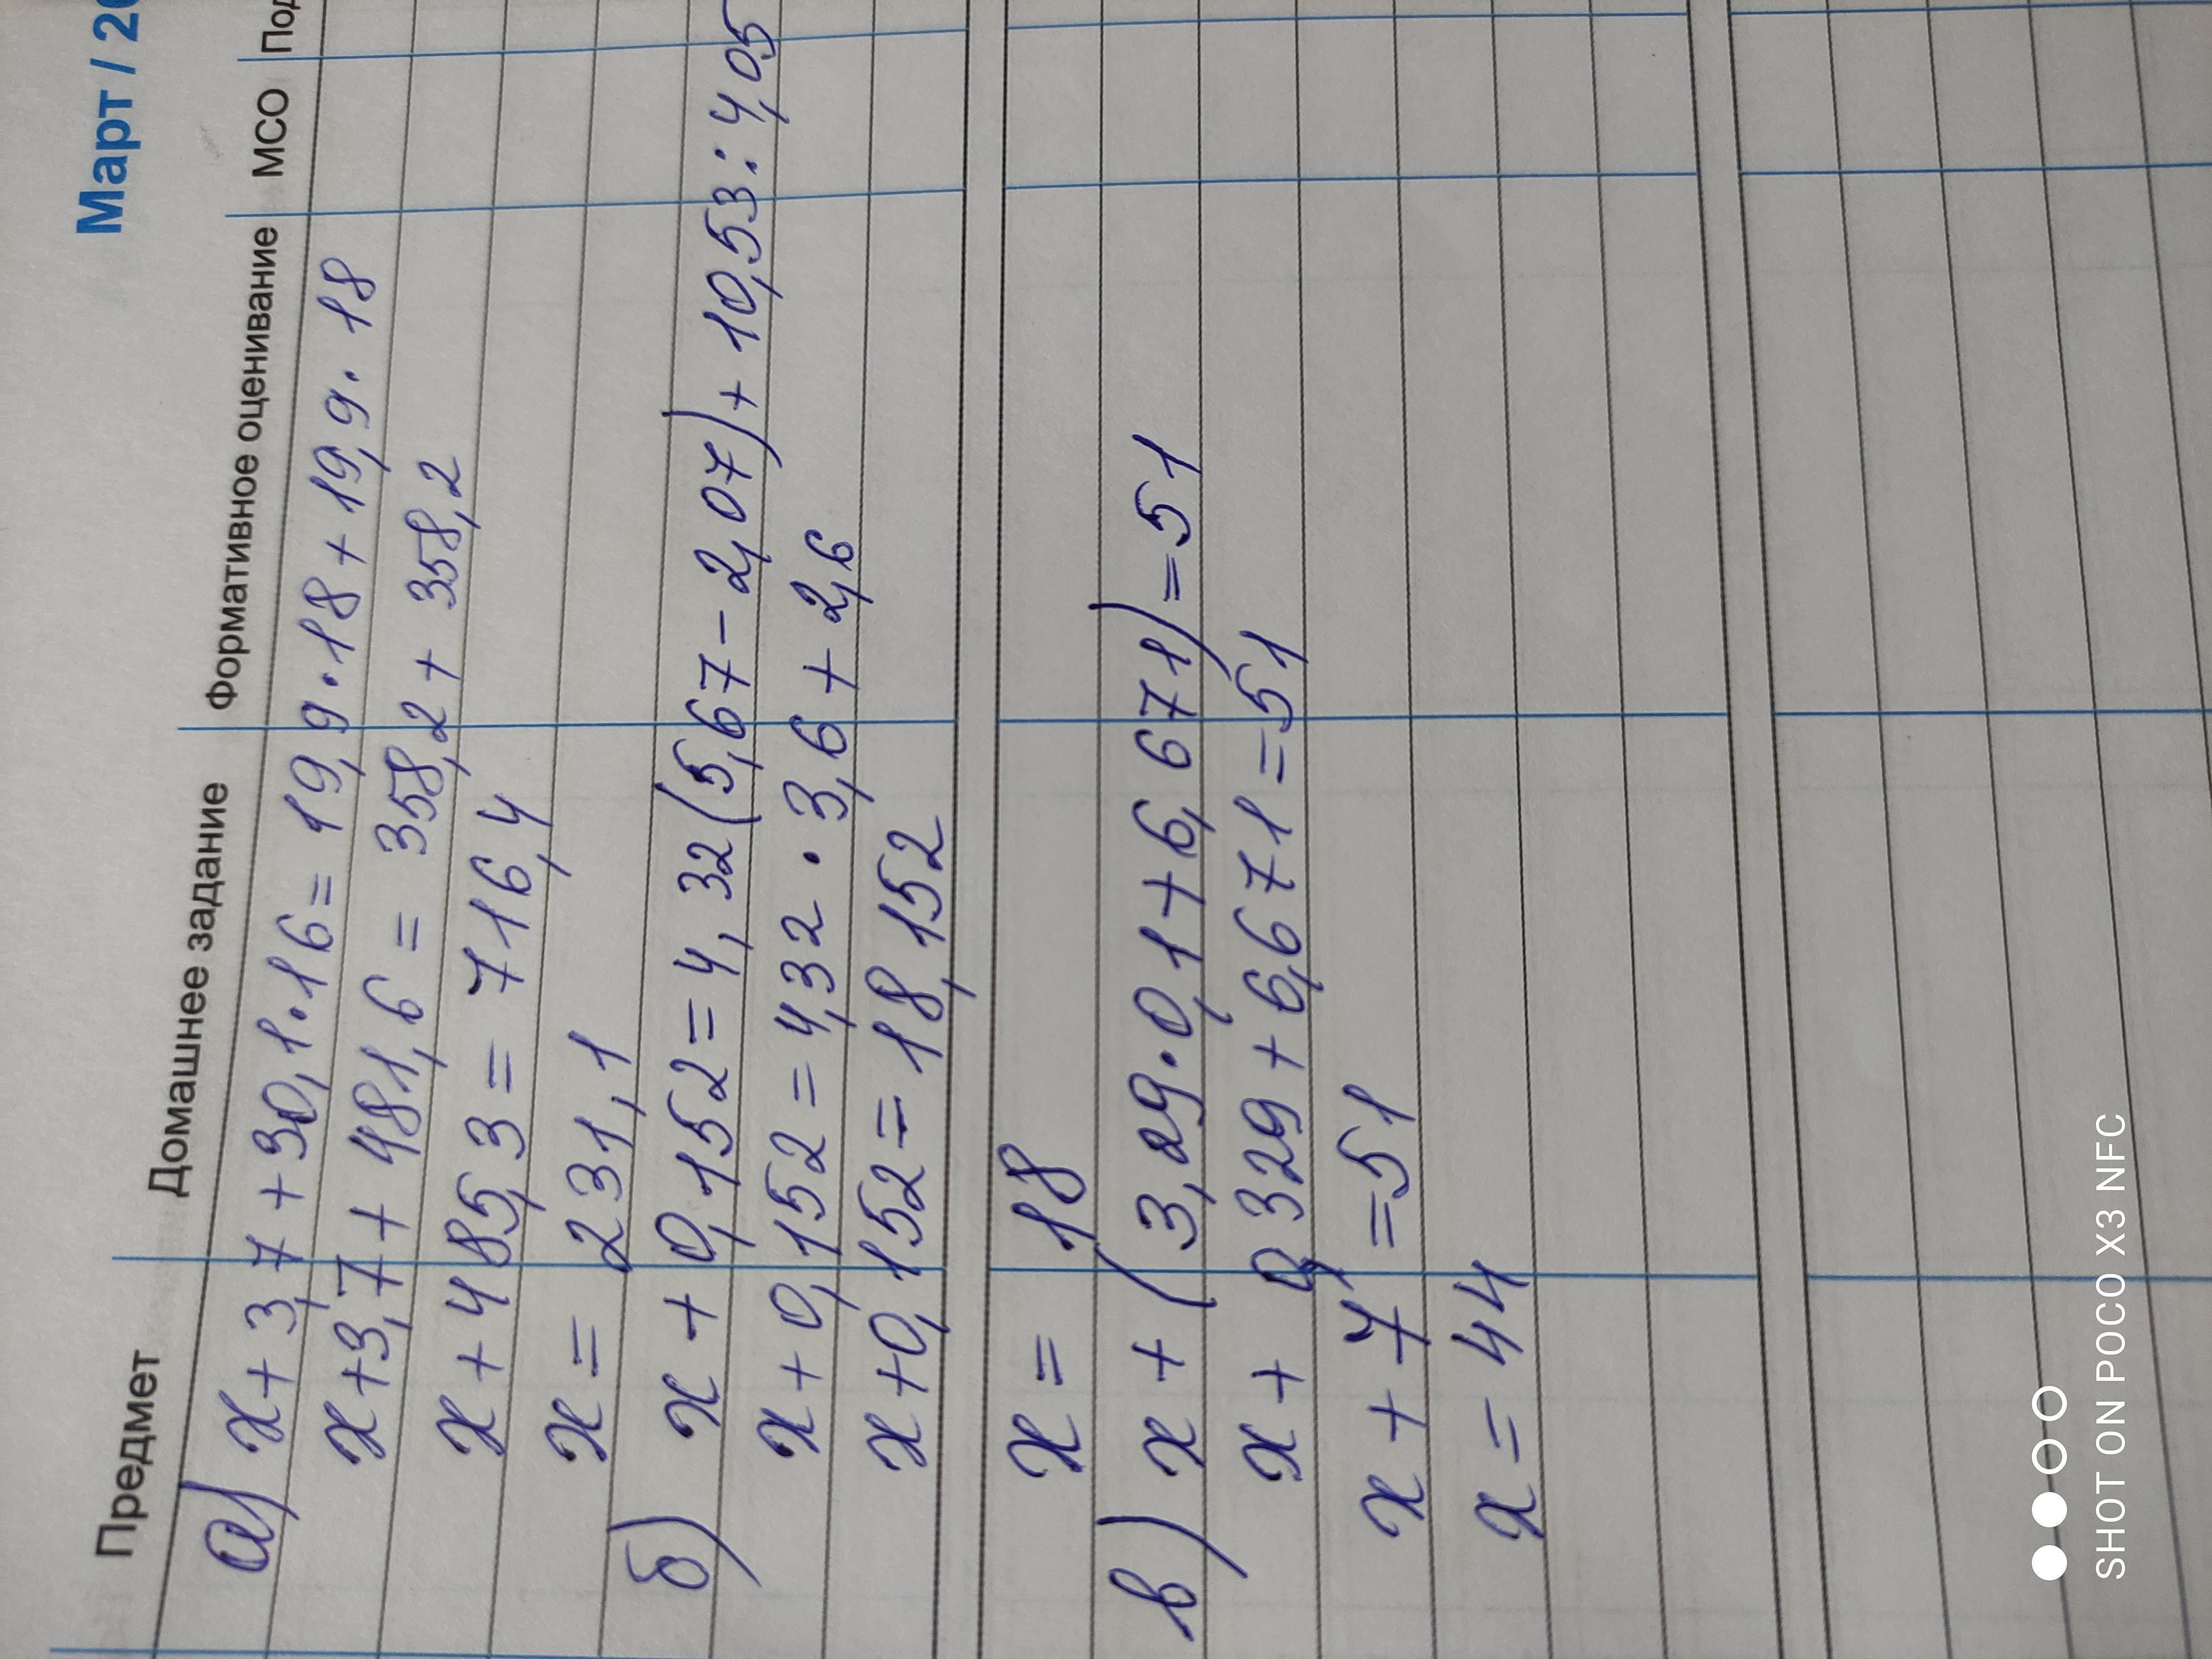 Март / 20
Предмет Домашнее задание Формативное оценивание МСО Под
а) x + 3,7 + 30,1 · 16 = 19,9 · 18 + 19,9 · 18
x + 3,7 + 481,6 = 358,2 + 358,2
x + 485,3 = 716,4
x = 231,1
б) x + 0,152 = 4,32 (5,67 - 2,07) + 10,53 : 4,05
x + 0,152 = 4,32 · 3,6 + 2,6
x + 0,152 = 18,152
x = 18
в) x + (3,29 · 0,1 + 6,671) = 51
x + 0,329 + 6,671 = 51
x + 7 = 51
x = 44
SHOT ON POCO X3 NFC